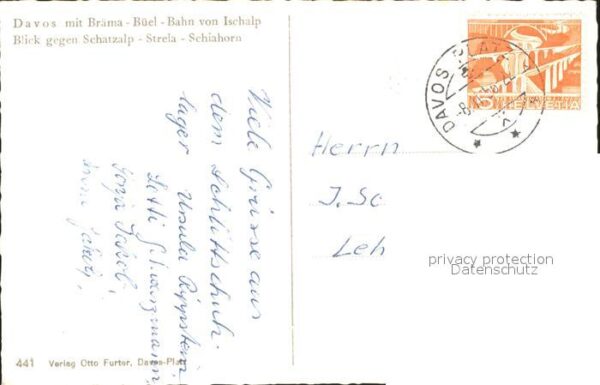 Davos mit Bräma - Büel - Bahn von Ischalp
Blick gegen Schatzalp - Strela - Schiahorn
Viele Grüsse aus
dem Schlittschuh-
lager Ursula
Schwarzmann,
DAVOS PLATZ
HELVETIA
Herrn
J. Sc
Leh
privacy protection
Datenschutz
441 Verlag Otto Furter, Davos-Platz